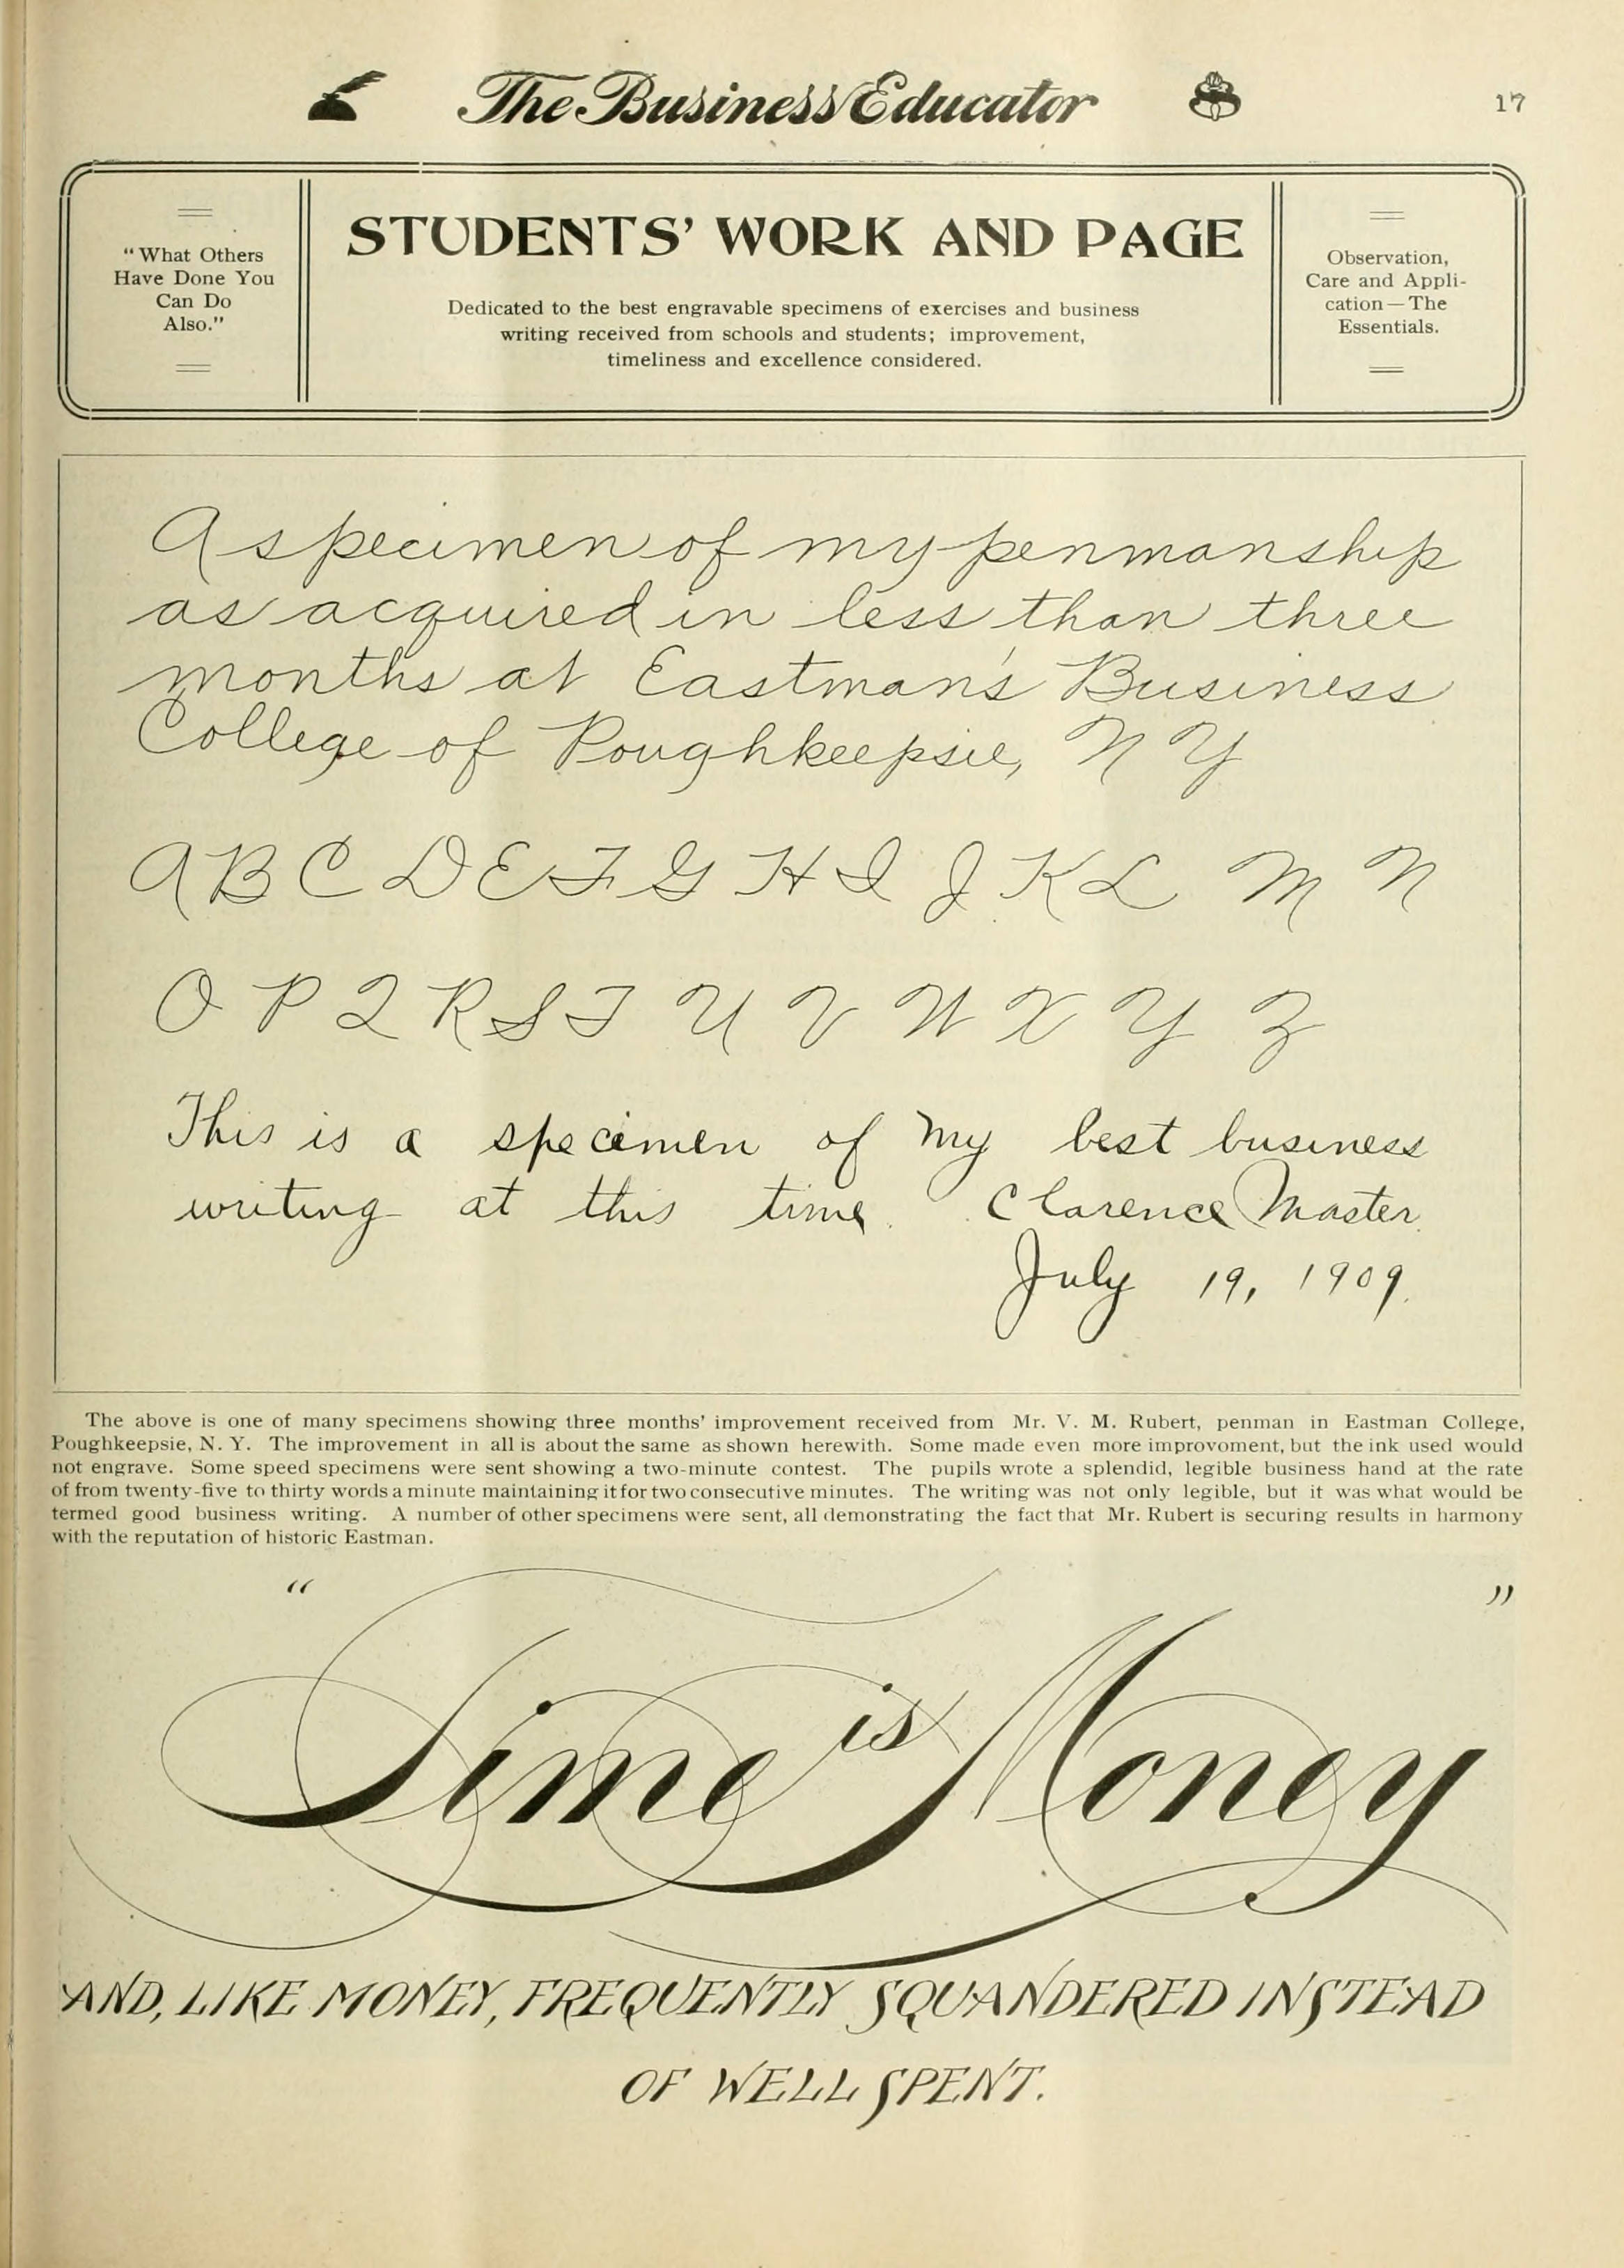 The Business Educator
17
"What Others
Have Done You
Can Do
Also."
STUDENTS' WORK AND PAGE
Dedicated to the best engravable specimens of exercises and business
writing received from schools and students; improvement,
timeliness and excellence considered.
Observation,
Care and Appli-
cation—The
Essentials.
A specimen of my penmanship
as acquired in less than three
months at Eastman's Business
College of Poughkeepsie, N Y
A B C D E F G H I J K L M N
O P Q R S T U V W X Y Z
This is a specimen of my best business
writing at this time. Clarence Master.
July 19, 1909.
The above is one of many specimens showing three months' improvement received from Mr. V. M. Rubert, penman in Eastman College,
Poughkeepsie, N. Y. The improvement in all is about the same as shown herewith. Some made even more improvoment, but the ink used would
not engrave. Some speed specimens were sent showing a two-minute contest. The pupils wrote a splendid, legible business hand at the rate
of from twenty-five to thirty words a minute maintaining it for two consecutive minutes. The writing was not only legible, but it was what would be
termed good business writing. A number of other specimens were sent, all demonstrating the fact that Mr. Rubert is securing results in harmony
with the reputation of historic Eastman.
"Time is Money"
AND, LIKE MONEY, FREQUENTLY SQUANDERED INSTEAD
OF WELL SPENT.